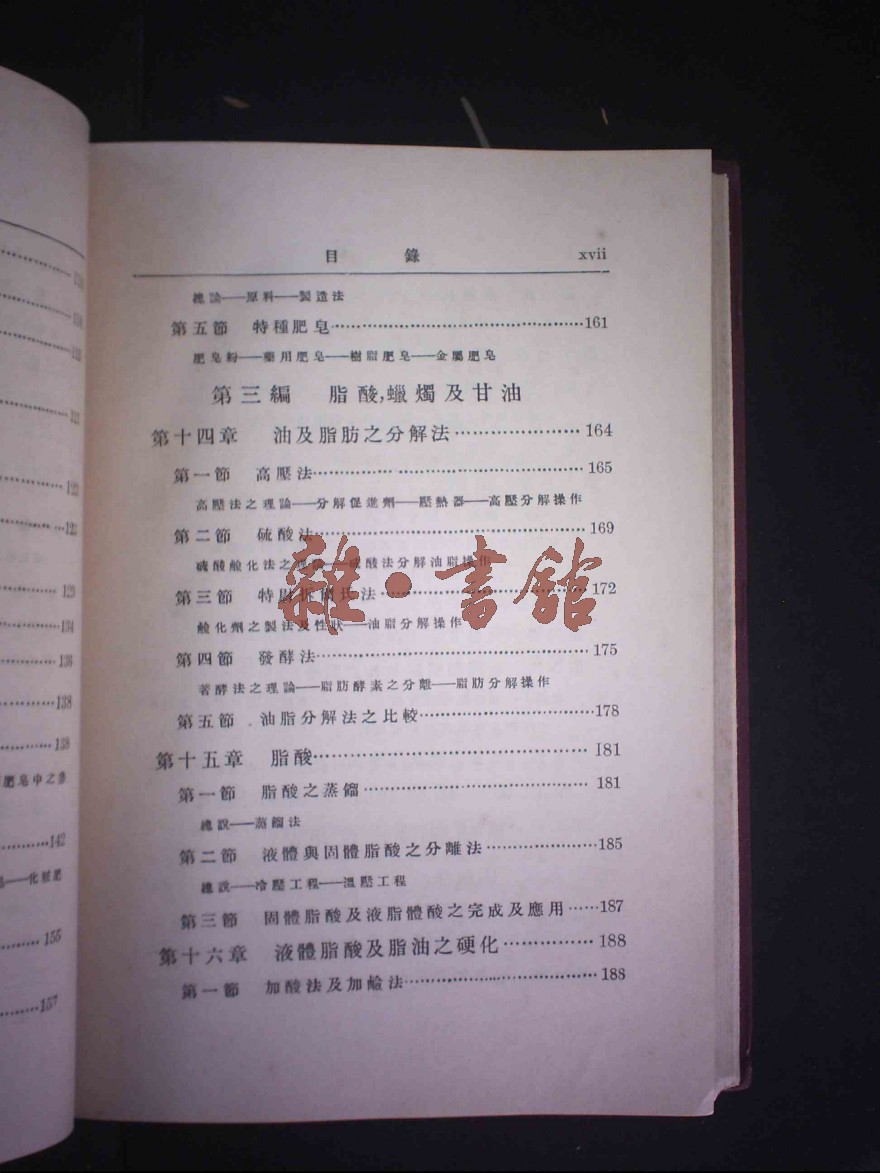 目錄 xvii
總論——原料——製造法
第五節 特種肥皂……161
肥皂粉——藥用肥皂——樹脂肥皂——金屬肥皂
第三編 脂酸,蠟燭及甘油
第十四章 油及脂肪之分解法……164
第一節 高壓法……165
高壓法之理論——分解促進劑——壓熱器——高壓分解操作
第二節 硫酸法……169
硫酸鹼化法之理論——硫酸法分解油脂操作
第三節 特 氏法……172
鹼化劑之製法及性狀——油脂分解操作
第四節 發酵法……175
著酵法之理論——脂肪酵素之分離——脂肪分解操作
第五節 油脂分解法之比較……178
第十五章 脂酸……181
第一節 脂酸之蒸餾……181
總說——蒸餾法
第二節 液體與固體脂酸之分離法……185
總說——冷壓工程——溫壓工程
第三節 固體脂酸及液脂體酸之完成及應用……187
第十六章 液體脂酸及脂油之硬化……188
第一節 加酸法及加鹼法……188
雜·書館
123
134
136
138
138
肥皂中之
142
化粧肥
155
157